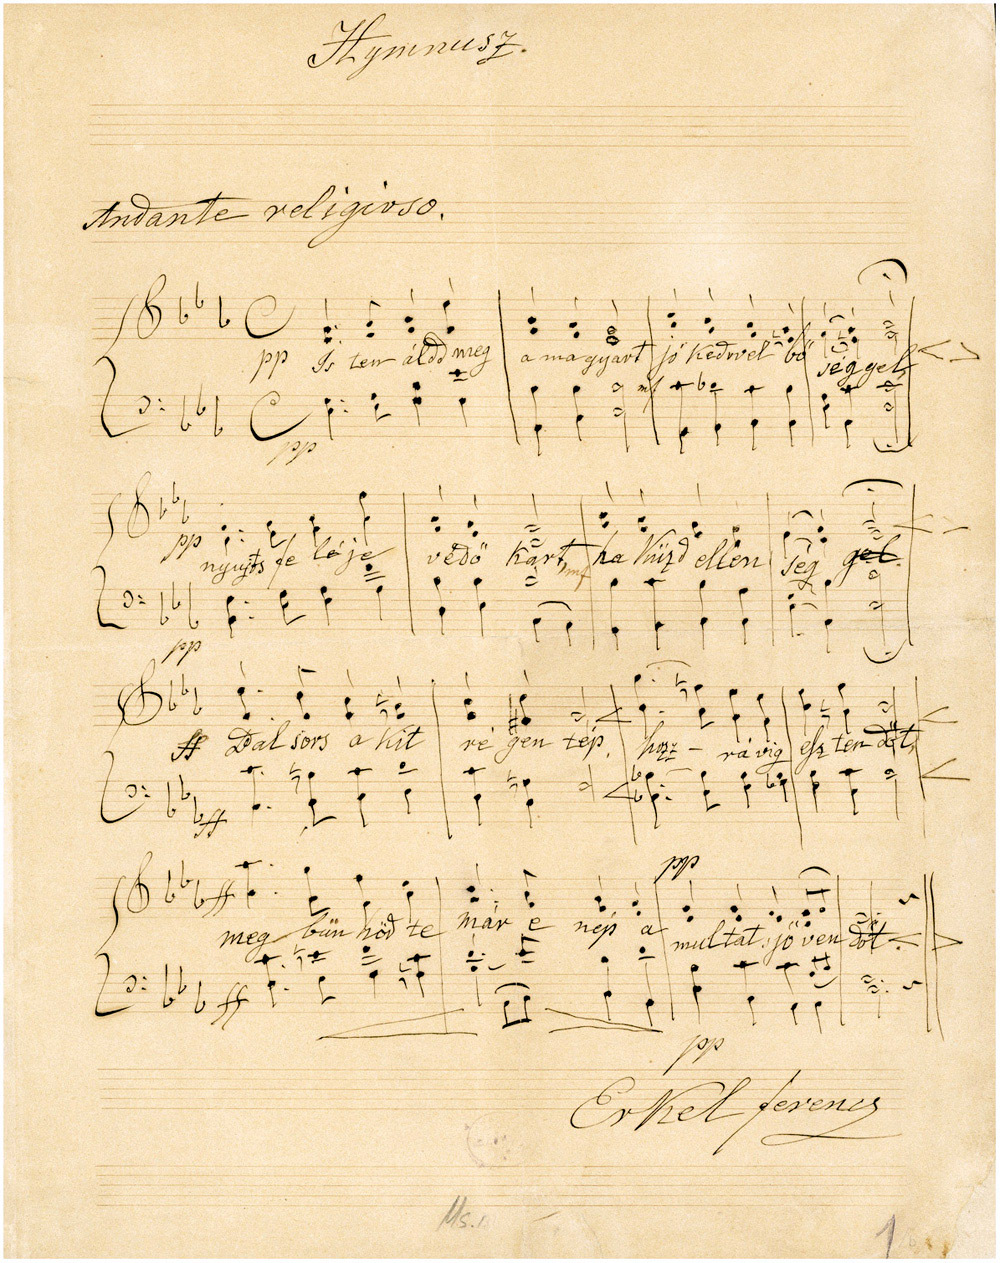 Hymnusz.
Andante religioso.
pp Is ten áldd meg a ma gyart jó kedvvel bő ség gel,
mf
pp
pp nyujts fe lé je védő kart, ha küzd ellen ség gel.
mf
pp
ff Bal sors a kit ré gen tép, hozz – rá víg esz ten dőt,
ff
pp
ff meg bün hőd te már e nép a multat s jö ven dőt.
ff
pp
Erkel ferencz
Ms.
1